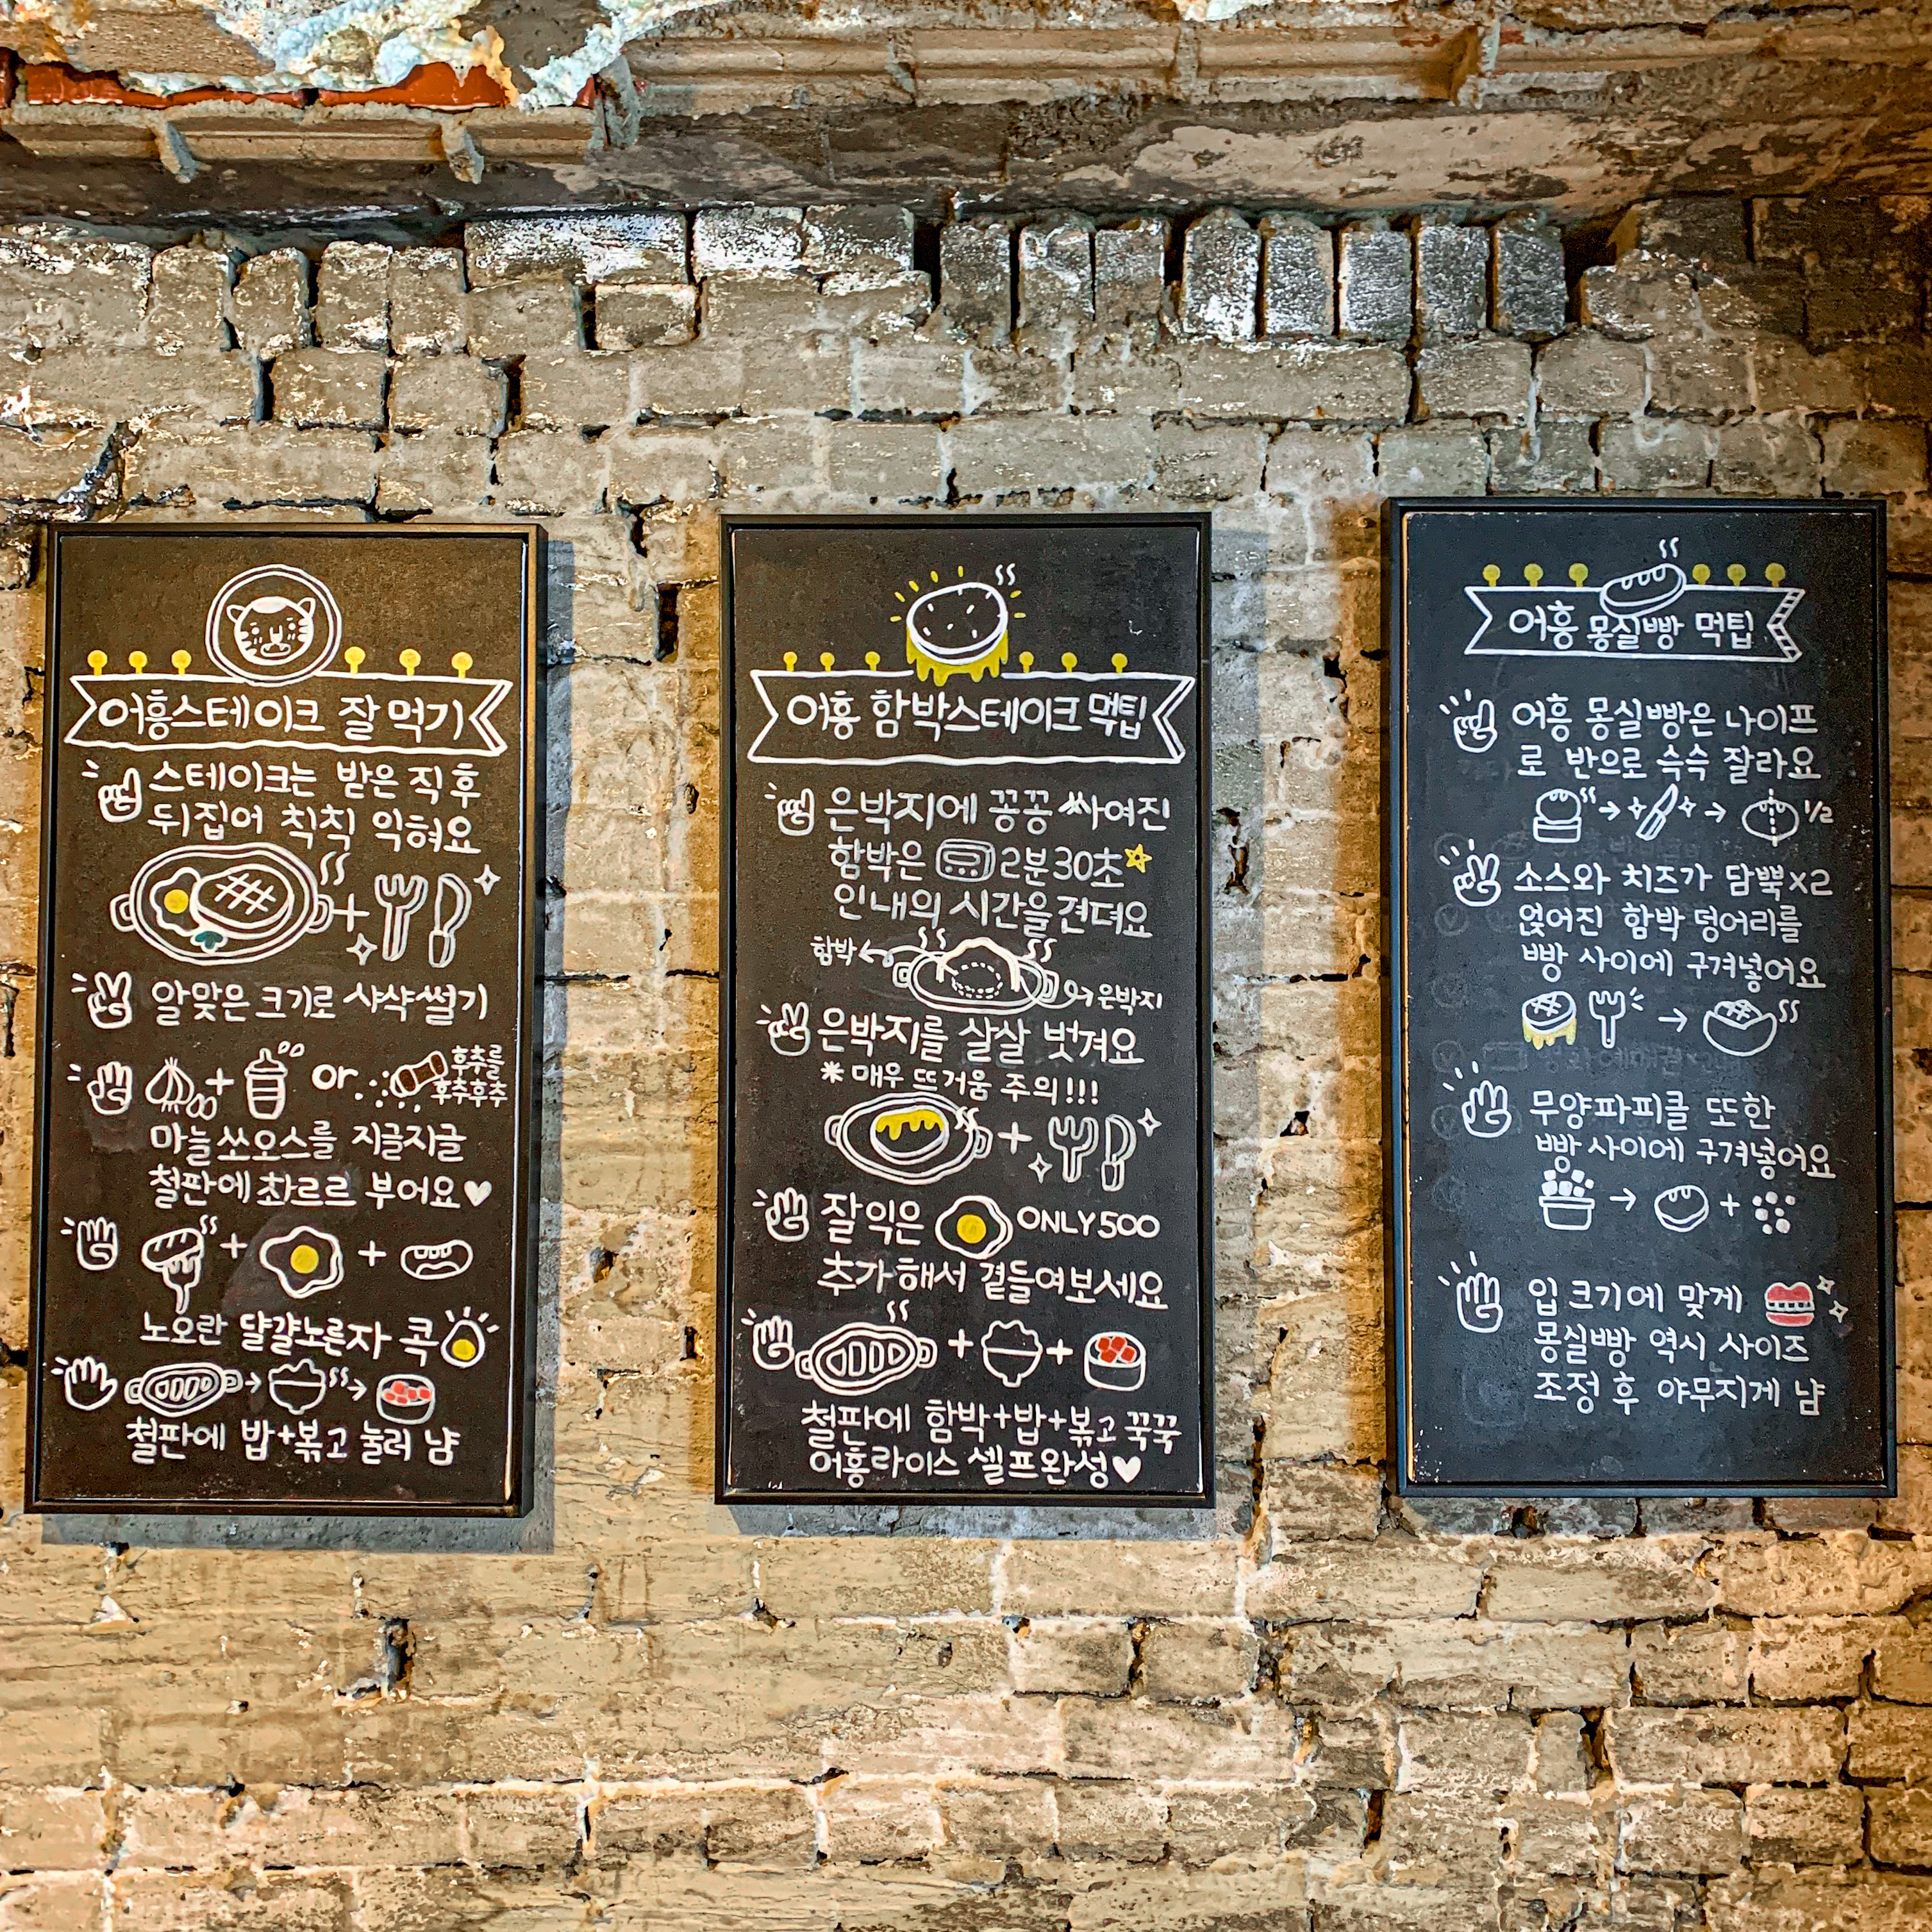 어흥스테이크 잘 먹기
스테이크는 받은 직후
뒤집어 칙칙 익혀요
알맞은 크기로 샤샥썰기
or
후추를
후추후추
마늘쏘오스를 지글지글
철판에 촤르르 부어요♥
노오란 달걀노른자 콕
철판에 밥+볶고 눌러 냠
어흥 함박스테이크 먹팁
은박지에 꽁꽁 싸여진
함박은 2분30초
인내의 시간을 견뎌요
함박
은박지
은박지를 살살 벗겨요
* 매우 뜨거움 주의!!!
잘익은 ONLY 500
추가해서 곁들여보세요
철판에 함박+밥+볶고 꾹꾹
어흥라이스 셀프완성♥
어흥 몽실빵 먹팁
어흥 몽실빵은 나이프
로 반으로 슥슥 잘라요
1/2
소스와 치즈가 담뿍x2
얹어진 함박 덩어리를
빵 사이에 구겨넣어요
무양파피클 또한
빵 사이에 구겨넣어요
입 크기에 맞게
몽실빵 역시 사이즈
조정 후 야무지게 냠